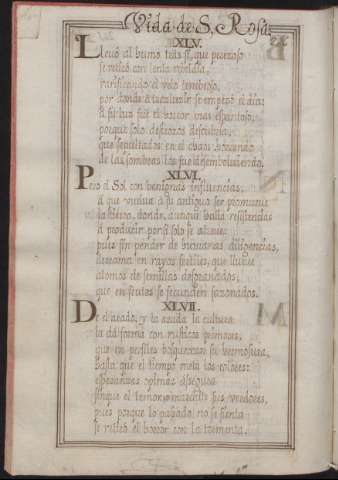 Vida de S. Rosa
XLV.
Llevó al humo tras sí, que perezoso
se retiró con lenta
rarificando el velo tenebroso,
por donde a traslucir se empezó el dia:
a su luz fue el horror mas espantoso,
porque solo destrozos descubria,
que sepultados en el chaos horrendo
de las sombras los fue desembolviendo.
XLVI.
Pero el Sol con benignas influencias,
á que vuelva á su antiguo ser promueve
la tierra, donde, aunque halla resistencias
á producir por sí solo se atreve:
pues sin pender de humanas diligencias,
derrama en rayos fertiles, que llueve
atomos de semillas desgranados,
que en frutos se fecunden sazonados.
XLVII.
De el arado, y la azada la cultura
la dá forma con rusticos primores,
que en perfiles bosquexan su hermosura,
hasta que el tiempo meta los colores:
esperanzas opimas assegura
sinque el temor marchite sus verdores,
pues porque lo passado no se sienta
se retiró el horror con la tormenta.